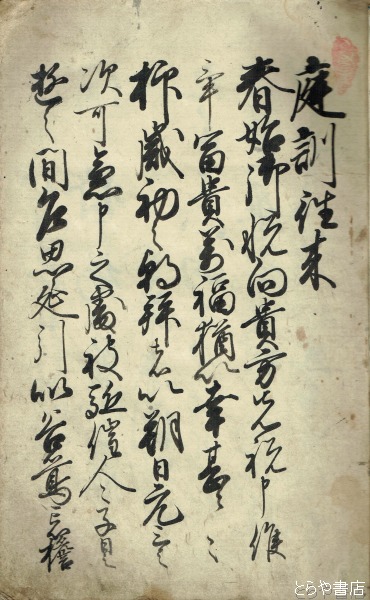 庭訓往来
春始御悦向貴方先祝申候
畢富貴万福猶以幸甚々々
抑歳初之朝拝者以朔日元三之
次可急申之處被駈催人々子日
遊之間乍思延引似谷鶯忘檐
とらや書店